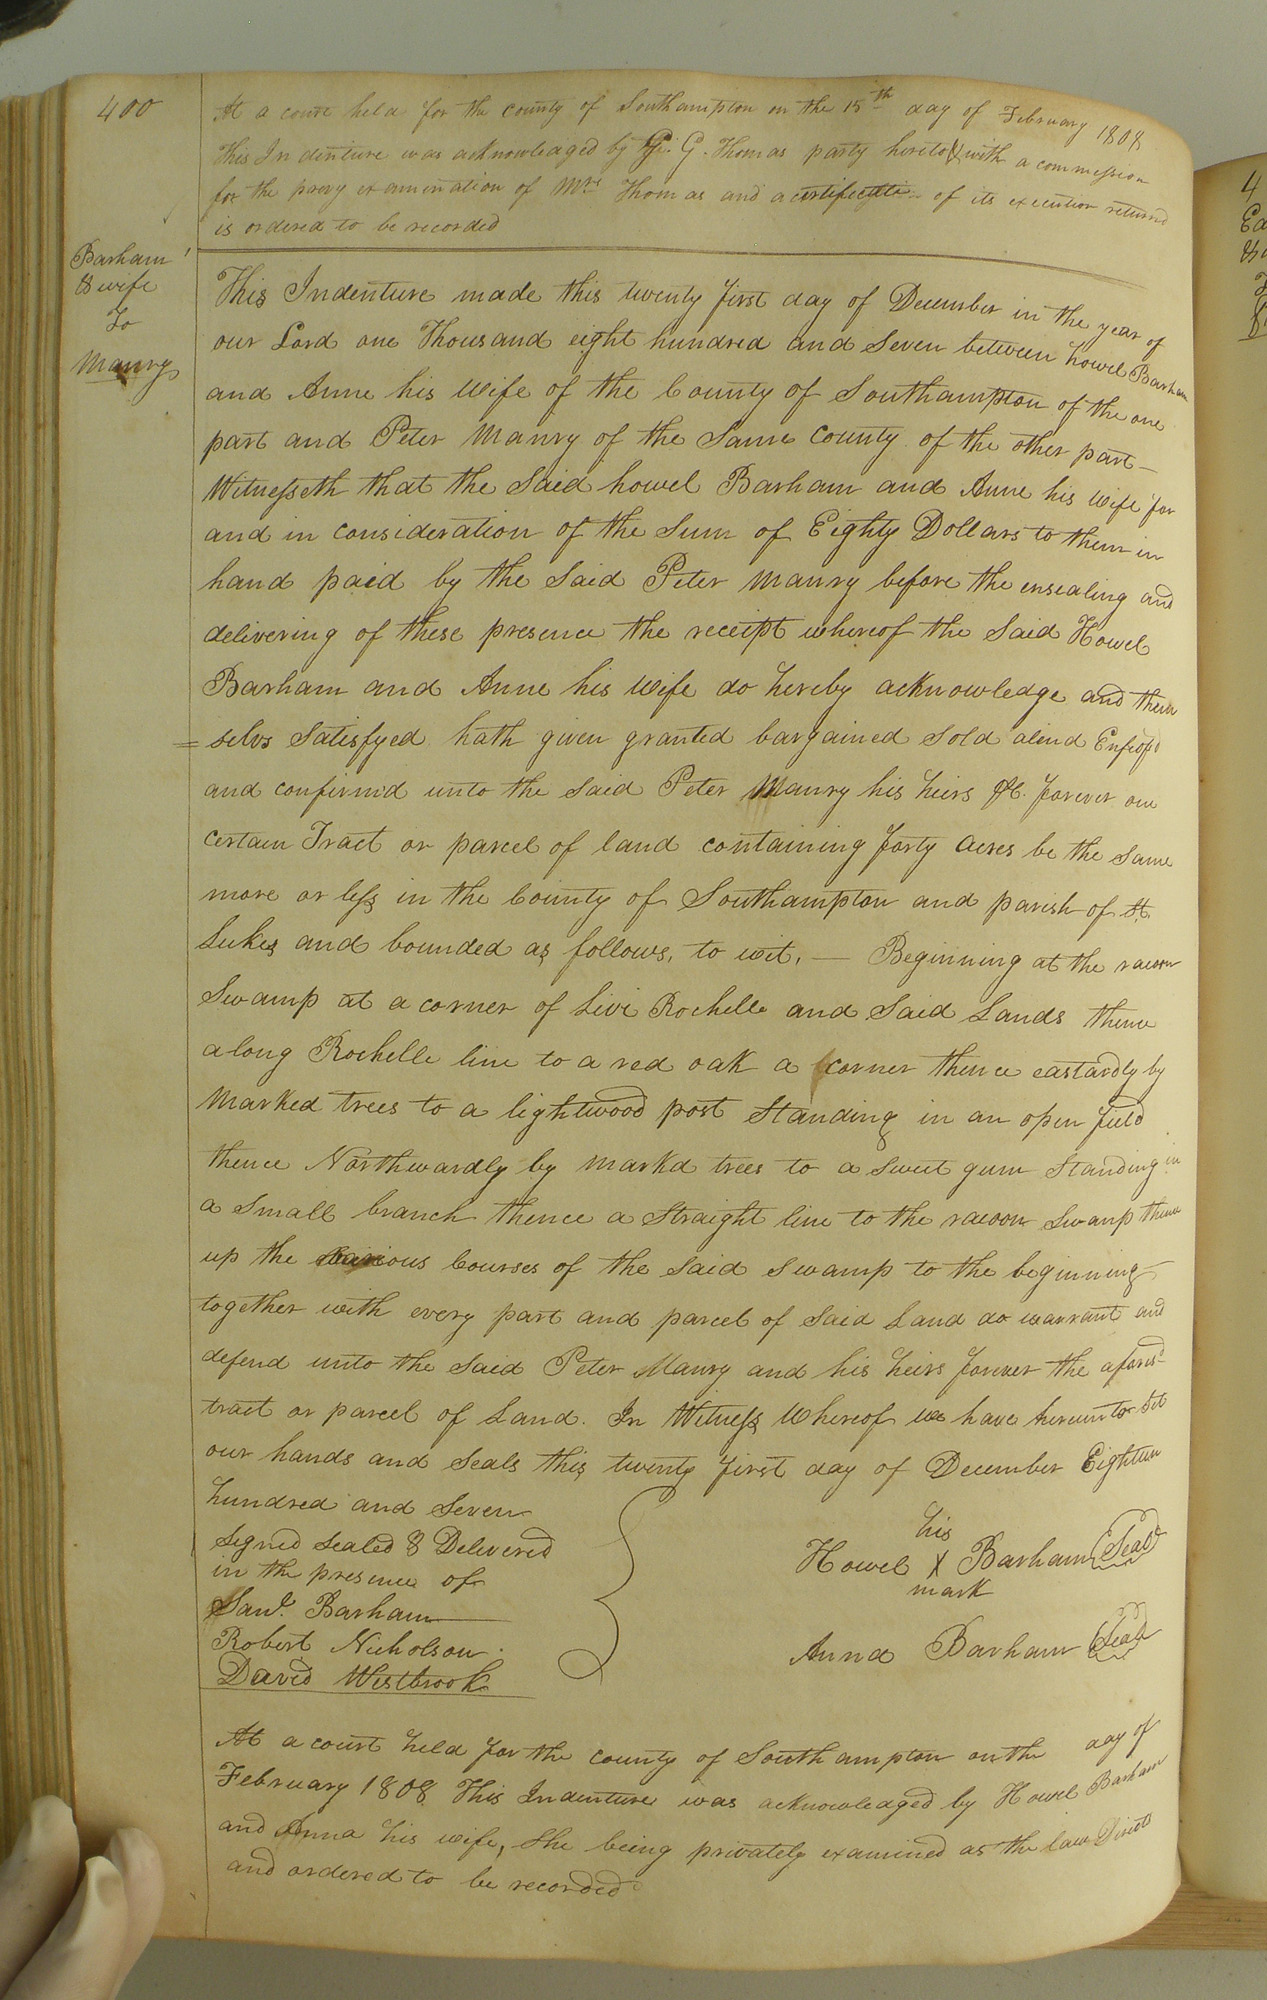 400
At a court held for the county of Southampton on the 15th day of February 1808
This Indenture was acknowledged by G. Thomas party hereto & with a commission
for the privy examination of Mrs Thomas and a certificate of its execution returned
is ordered to be recorded
Barham
& wife
To
Manry
This Indenture made this twenty first day of December in the year of
our Lord one Thousand eight hundred and Seven between howel Barham
and Anne his wife of the County of Southampton of the one
part and Peter Manry of the Same County of the other part —
Witnesseth that the Said howel Barham and Anne his wife for
and in consideration of the Sum of Eighty Dollars to them in
hand paid by the Said Peter Manry before the ensealing and
delivering of these presence the receipt whereof the Said Howel
Barham and Anne his wife do hereby acknowledge and them
= selvs Satisfyed hath given granted bargained Sold aliend Enfeoff'd
and confirm'd unto the Said Peter Manry his heirs &c. forever one
certain Tract or parcel of land containing forty acres be the Same
more or less in the County of Southampton and parish of St
Lukes and bounded as follows, to wit, — Beginning at the racoon
Swamp at a corner of Livi Rochelle and Said Lands thence
along Rochelle line to a red oak a corner thence eastardly by
marked trees to a lightwood post Standing in an open field
thence Northwardly by markd trees to a Sweet gum Standing in
a Small branch thence a Straight line to the racoon Swamp thence
up the various Courses of the Said Swamp to the beginning —
together with every part and parcel of Said Land do warrant and
defend unto the Said Peter Manry and his heirs forever the aforesd
tract or parcel of Land. In Witness Whereof we have hereunto Set
our hands and Seals this twenty first day of December Eighteen
hundred and Seven
Signd Sealed & Delivered
in the presence of
Saml. Barham
Robert Nicholson
David Westbrook
his
Howel X Barham Seal
mark
Anna Barham Seal
At a court held for the county of Southampton on the day of
February 1808 This Indenture was acknowledged by Howel Barham
and Anna his wife, She being privately examined as the law Directs
and ordered to be recorded